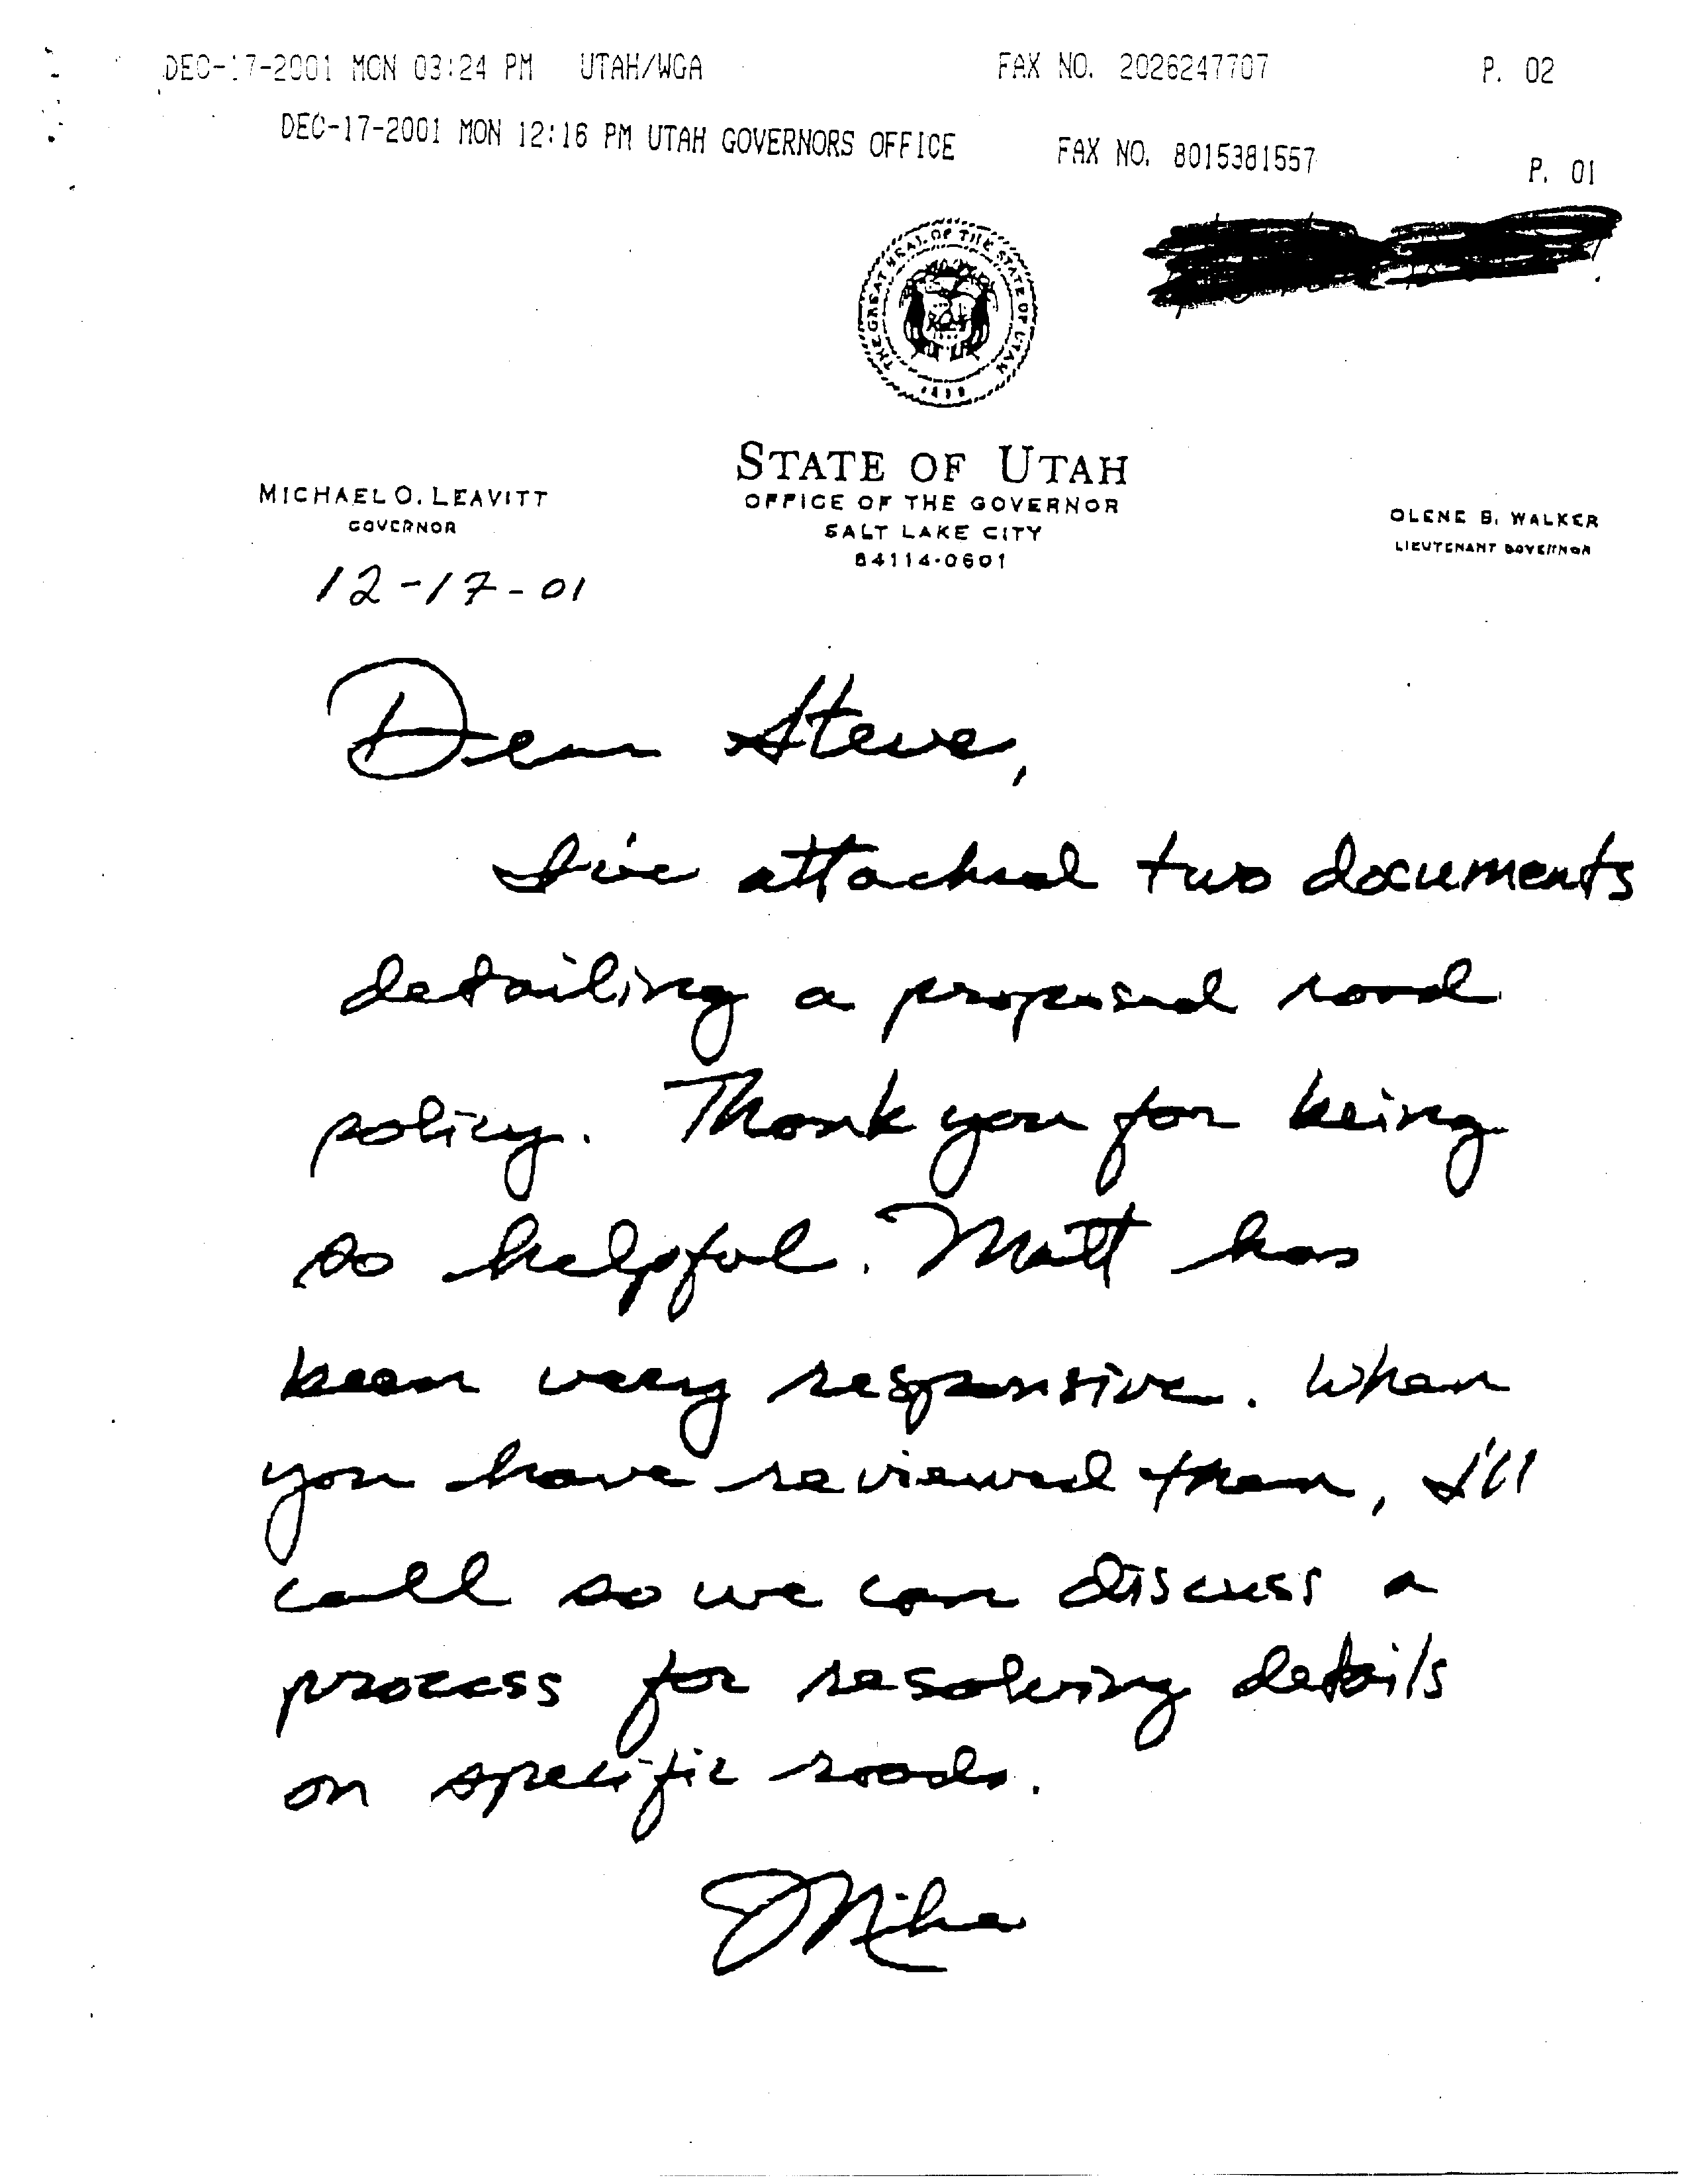 DEC-17-2001 MON 03:24 PM UTAH/WGA FAX NO. 2026247707 P. 02
DEC-17-2001 MON 12:16 PM UTAH GOVERNORS OFFICE FAX NO. 8015381557 P. 01
THE GREAT SEAL OF THE STATE OF UTAH
STATE OF UTAH
OFFICE OF THE GOVERNOR
SALT LAKE CITY
84114-0601
MICHAEL O. LEAVITT
GOVERNOR
OLENE S. WALKER
LIEUTENANT GOVERNOR
12-17-01
Dear Steve,
I've attached two documents
detailing a proposed road
policy. Thank you for being
so helpful. Matt has
been very responsive. When
you have reviewed them, I'll
call so we can discuss a
process for resolving details
on specific roads.
Mike